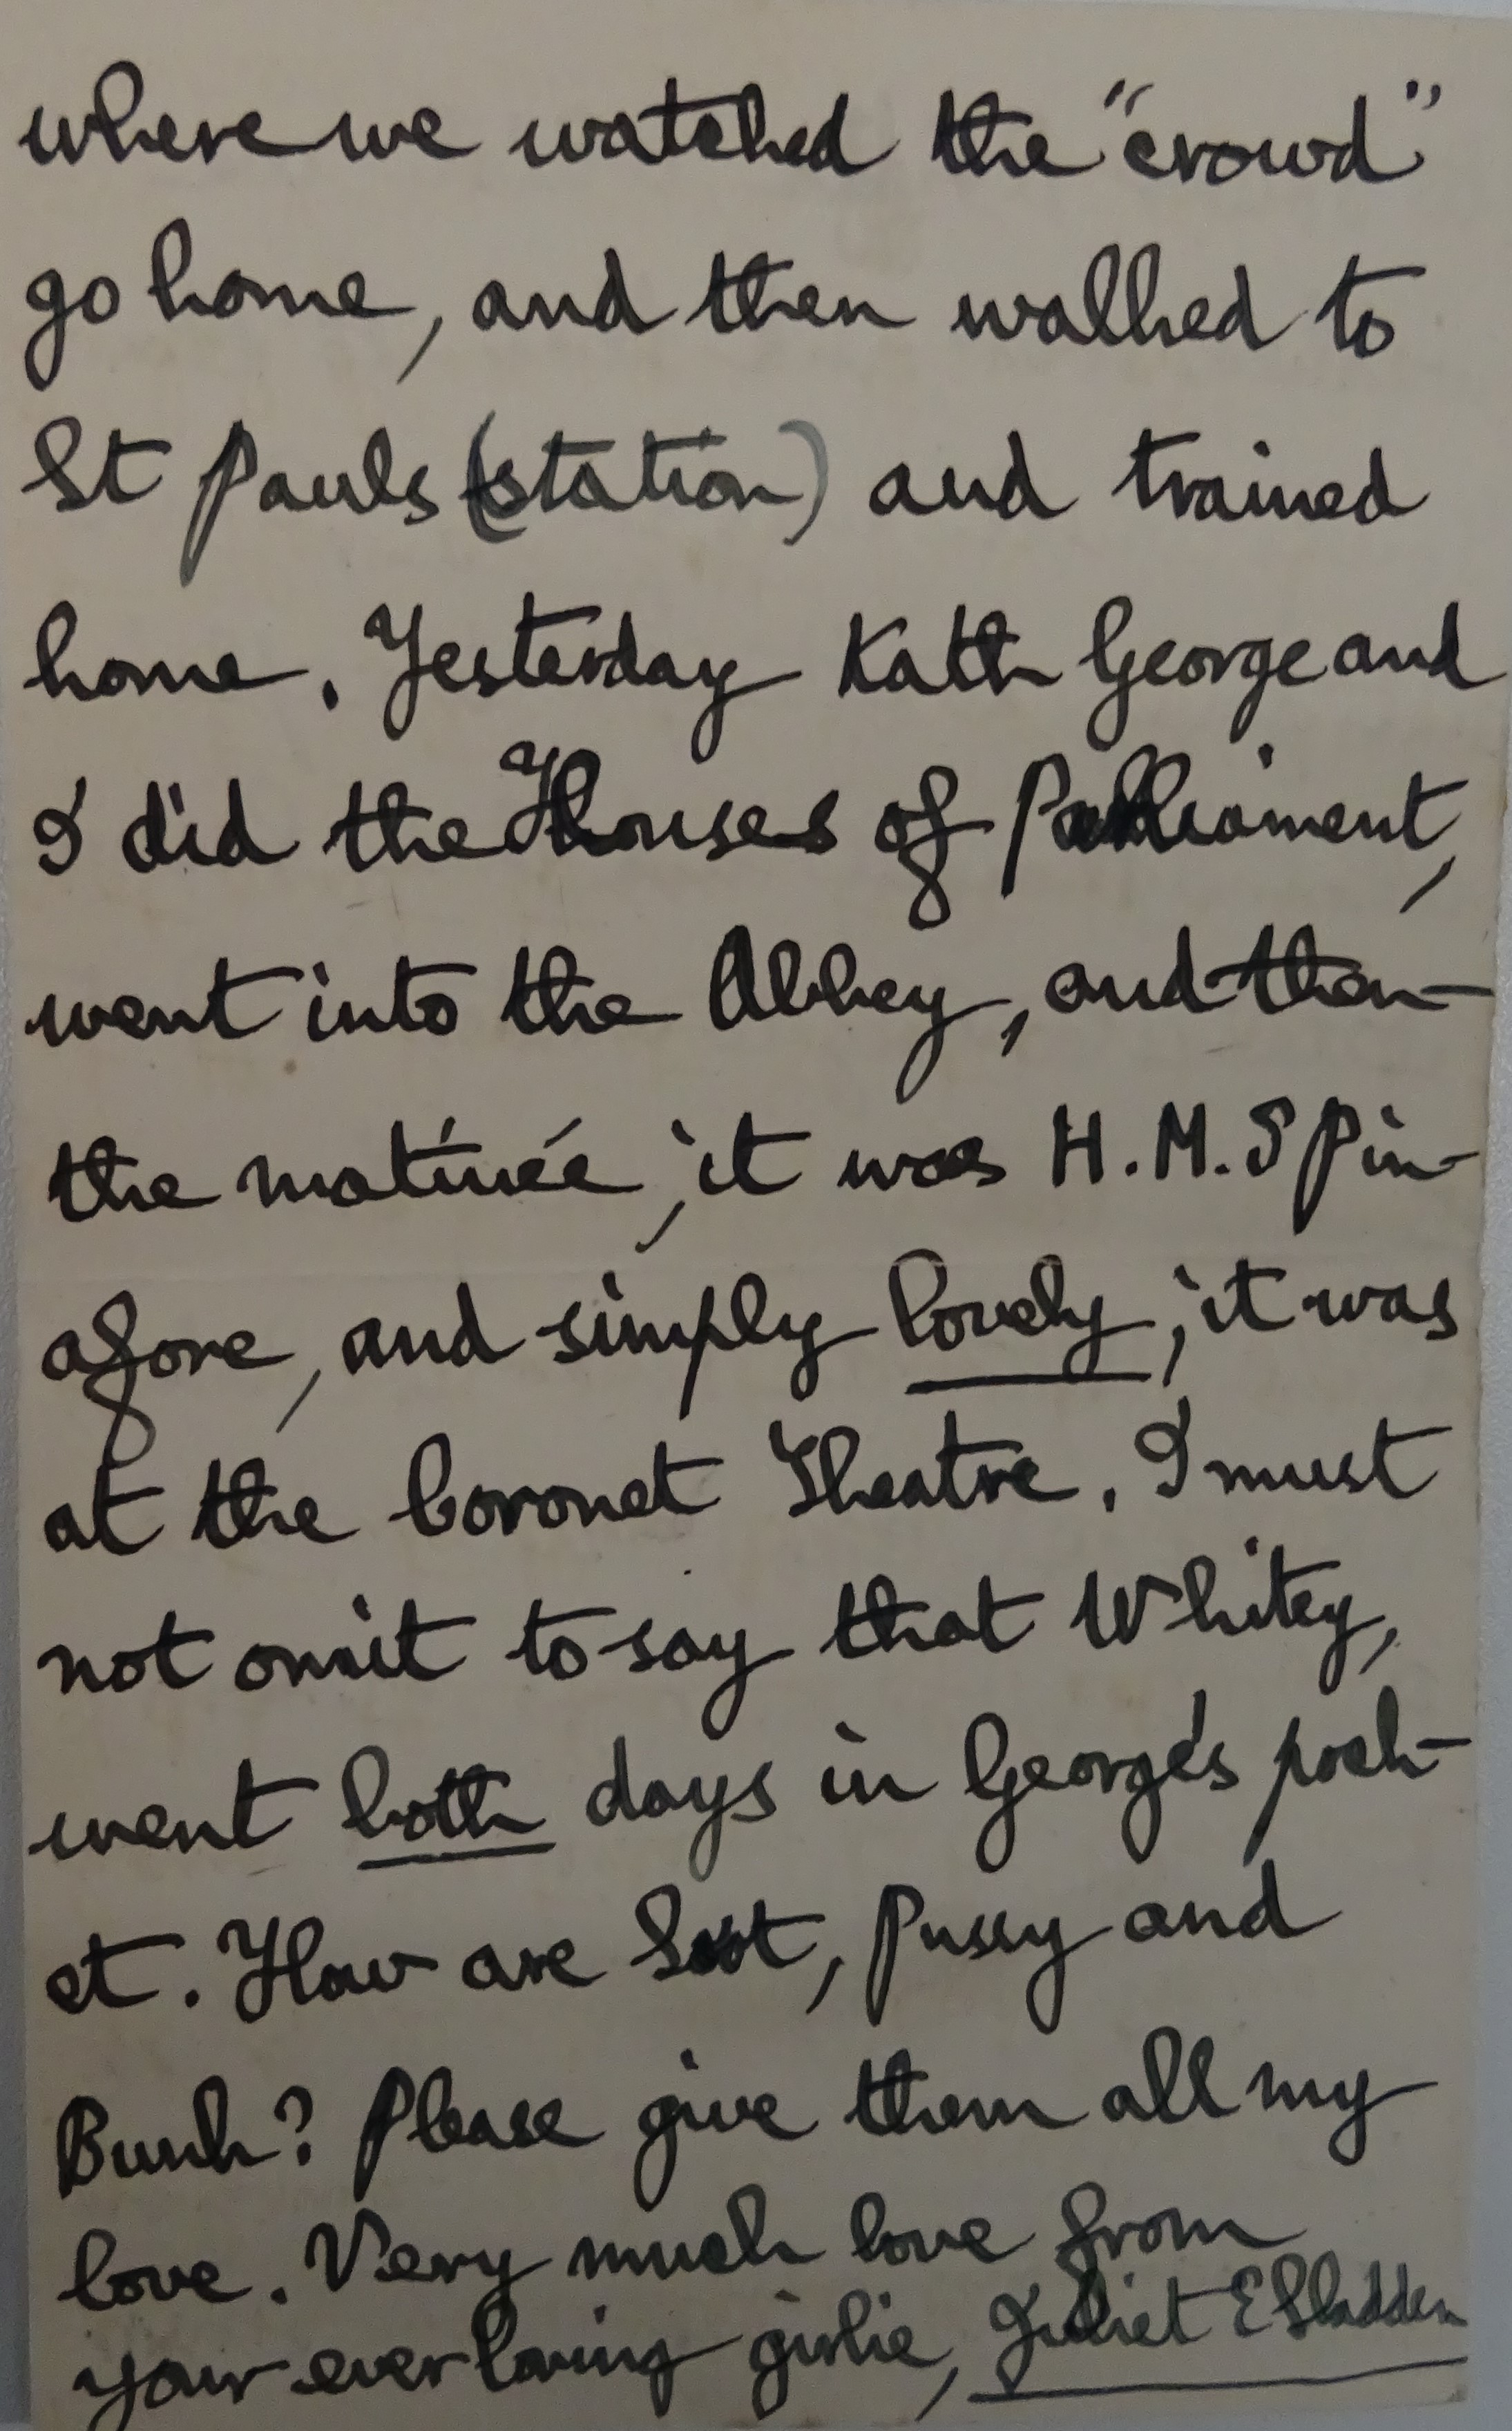 where we watched the "crowd"
go home, and then walked to
St Pauls (station) and trained
home. Yesterday Kath George and
I did the Houses of Parliament,
went into the Abbey, and then
the matinée, it was H.M.S Pin-
afore, and simply lovely, it was
at the Coronet Theatre. I must
not omit to say that Whitey,
went both days in George's pock-
et. How are Soot, Pussy and
Bunk? Please give them all my
love. Very much love from
your ever loving girlie, Juliet E Sladden